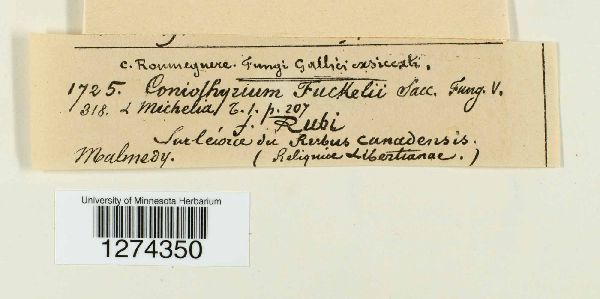 C. Roumeguere. Fungi Gallici exsiccati.
1725. Coniothyrium Fuckelii Sacc. Fung. V.
318. & Michelia, T. 1. p. 207
f. Rubi
Sur l'écorce du Rubus canadensis.
Malmedy. (Reliquiae Libertianae.)
University of Minnesota Herbarium
1274350